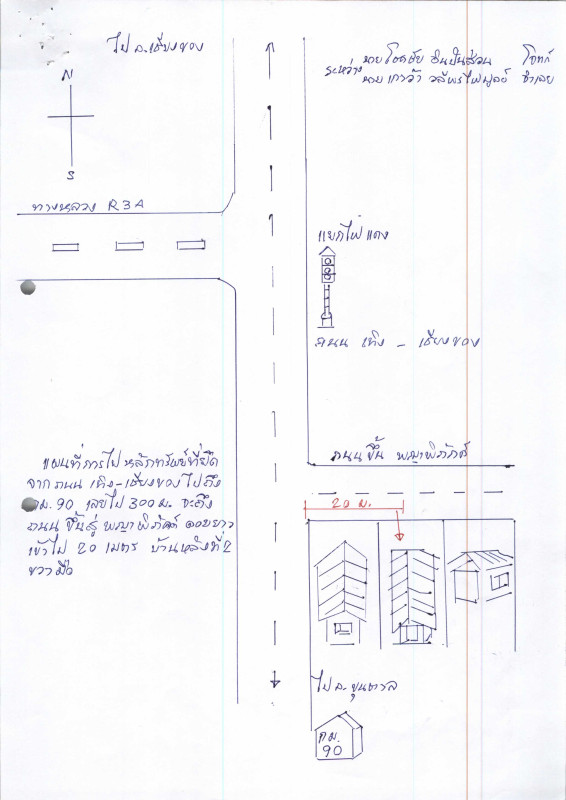 ไป อ.เชียงของ
ระหว่าง นาย โชคชัย โจทก์
นาย จำเลย
N
S
ทางหลวง R3A
แยกไฟแดง
ถนน เทิง - เชียงของ
ถนนขึ้น พญาพิภักดิ์
20 ม.
แผนที่การไป หลักทรัพย์ที่ยึด
จาก ถนน เทิง-เชียงของ ไปถึง
กม. 90 เลยไป 300 ม. จะถึง
ถนน ขึ้นสู่ พญาพิภักดิ์
เข้าไป 20 เมตร บ้านหลังที่ 2
ขวามือ
ไป อ.ขุนตาล
กม.
90